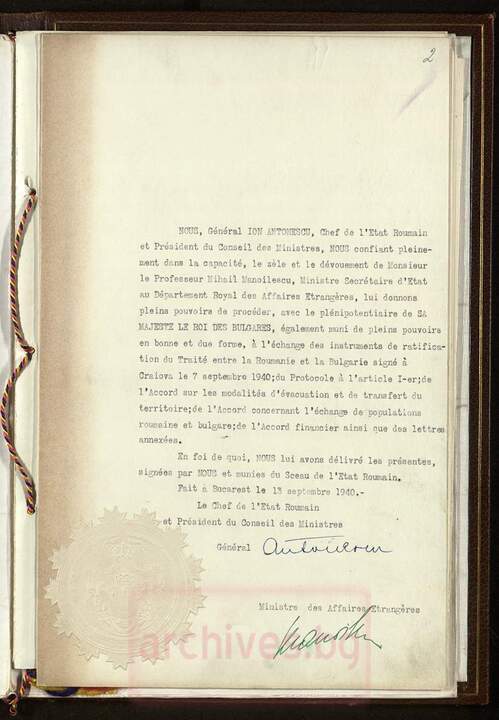 2
NOUS, Général ION ANTONESCU, Chef de l'Etat Roumain
et Président du Conseil des Ministres, NOUS confiant pleine-
ment dans la capacité, le zèle et le dévouement de Monsieur
le Professeur Mihail Manoilescu, Ministre Secrétaire d'Etat
au Département Royal des Affaires Etrangères, lui donnons
pleins pouvoirs de procéder, avec le plénipotentiaire de SA
MAJESTE LE ROI DES BULGARES, également muni de pleins pouvoirs
en bonne et due forme, à l'échange des instruments de ratifica-
tion du Traité entre la Roumanie et la Bulgarie signé à
Craiova le 7 septembre 1940;du Protocole à l'article I-er;de
l'Accord sur les modalités d'évacuation et de transfert du
territoire;de l'Accord concernant l'échange de populations
roumaine et bulgare;de l'Accord financier ainsi que des lettres
annexées.
En foi de quoi, NOUS lui avons délivré les présentes,
signées par NOUS et munies du Sceau de l'Etat Roumain.
Fait à Bucarest le 13 septembre 1940.-
Le Chef de l'Etat Roumain
et Président du Conseil des Ministres
Général Antonescu
Ministre des Affaires Etrangères
archives.bg